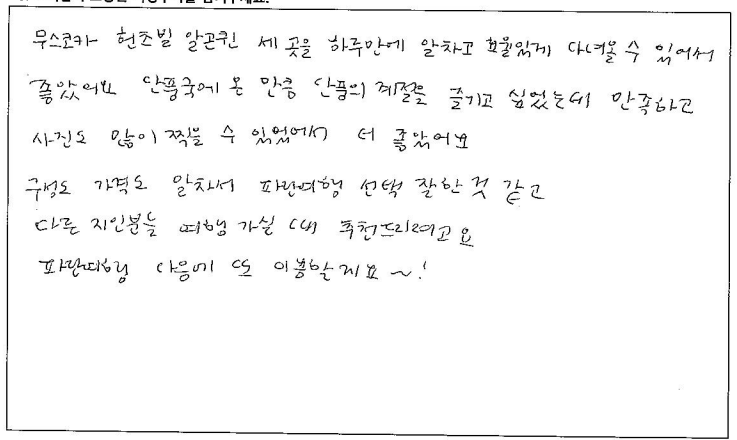 무스코카 헌츠빌 알곤퀸 세 곳을 하루만에 알차고 효율있게 다녀올 수 있어서
좋았어요 단풍국에 온 만큼 단풍의 계절을 즐기고 싶었는데 만족하고
사진도 많이 찍을 수 있었어서 더 좋았어요
구성도 가격도 알차서 파란여행 선택 잘한 것 같고
다른 지인분들 여행 가실 때 추천드리려고요
파란여행 다음에 또 이용할게요 ~!